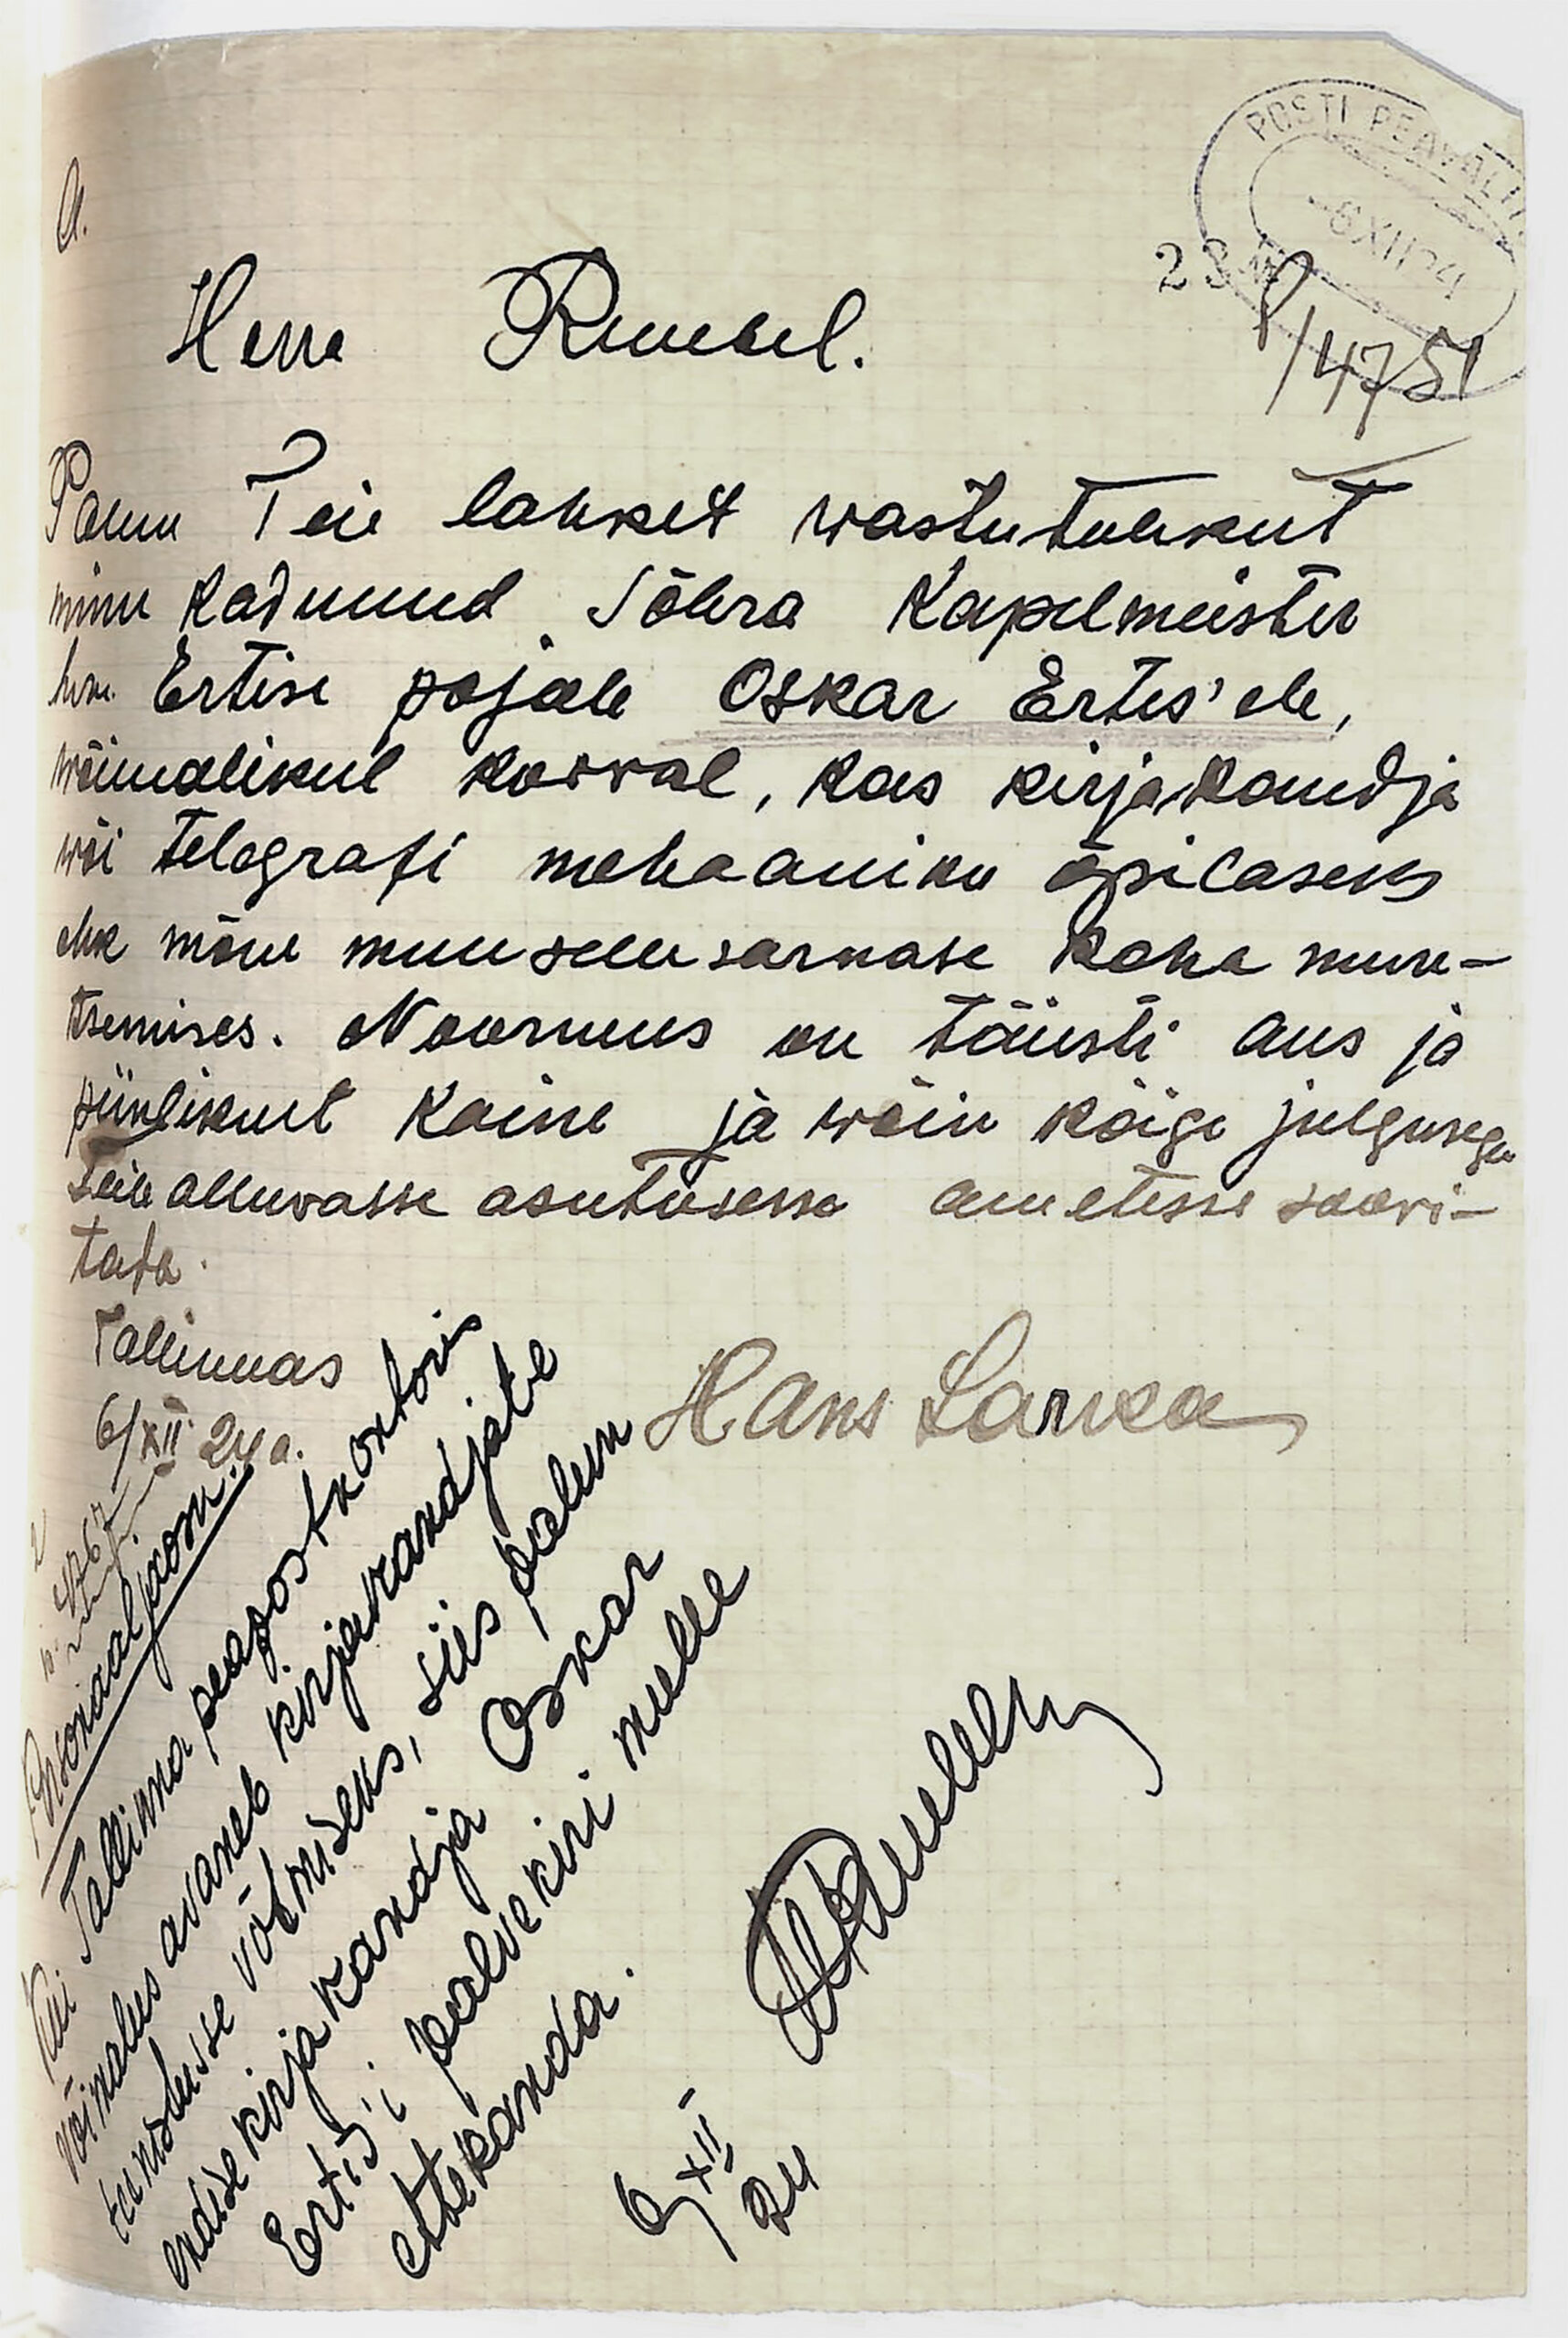 A.
POSTI PEAVALIT
-6 XII 24
23
P/4751
Herra Rumessel.
Palun Teie lahket wastutulekut
minu kadunud sõbra Kapelmeister
hrn. Ertise pojale Oskar Ertis'ele,
wõimalikul korral, kas kirjakandja
wõi telegrafi mehaaniku õpilaseks
ehk mõne muu selle sarnase koha muret-
tsemises. Noormees on täiesti aus ja
piinlikult kaine ja wõin kõige julgusega
Teile alluvasse asutusesse ametisse soovi-
tada.
Tallinnas
6/XII 24 a.
Hans Laruea
Personaaljaosk.
Kui Tallinna peapostkontoris
võimalus avaneb kirjakandjate
teenistusse võtmiseks, siis palun
endise kirjakandja Oskar
Ertis'i palvekiri mulle
ettekanda.
6 XII 24